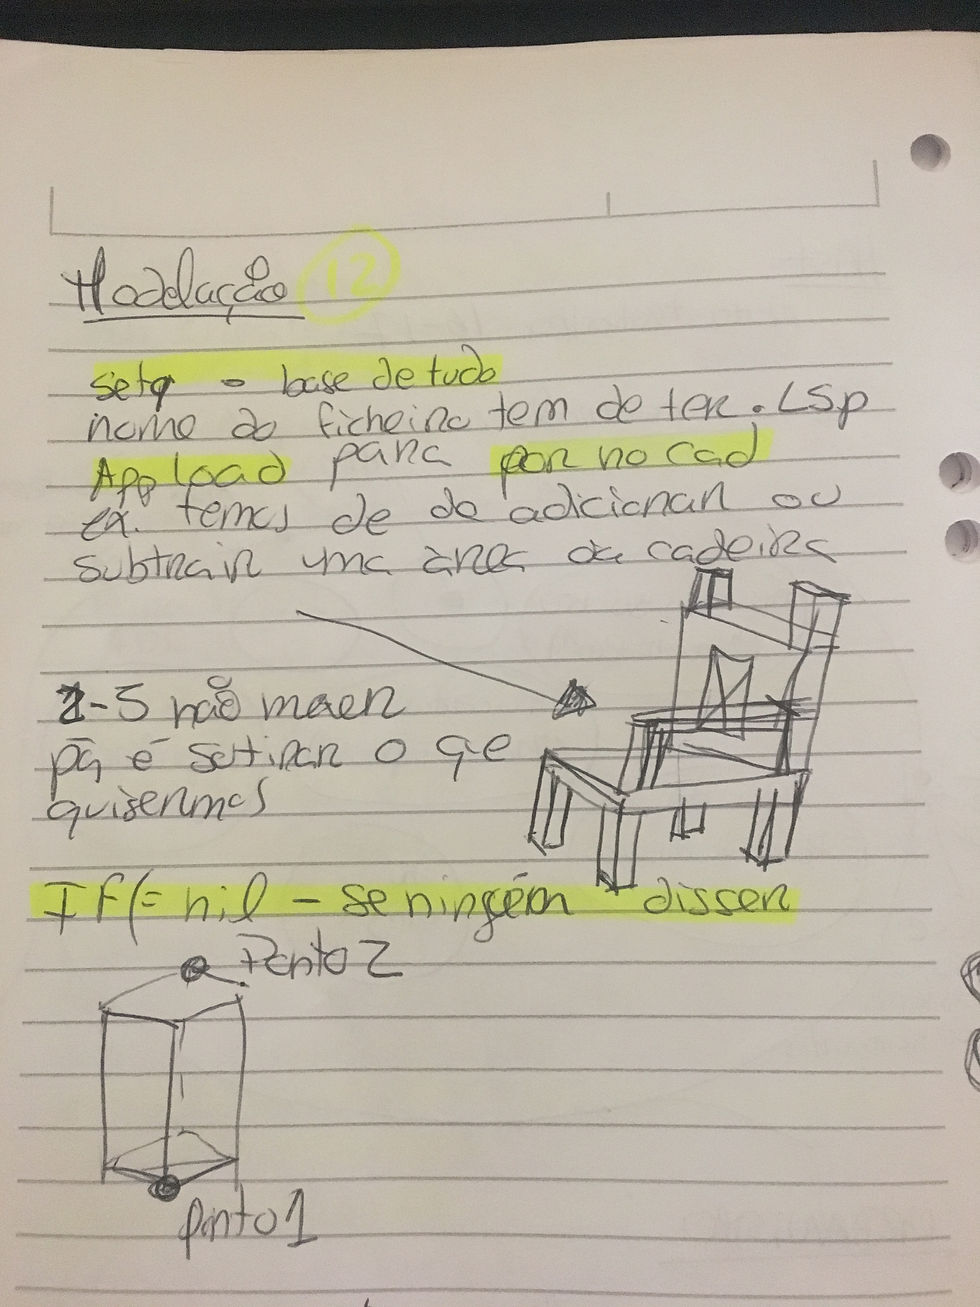 Modelação 12
setq - base de tudo
nome do ficheiro tem de ter .LSp
App load para por no cad
ex: temos de do adicionar ou
subtrair uma área da cadeira
1-S não
pa é só tirar o qe
quisermos
If(= nil - se ninguém disser
Ponto 2
ponto 1